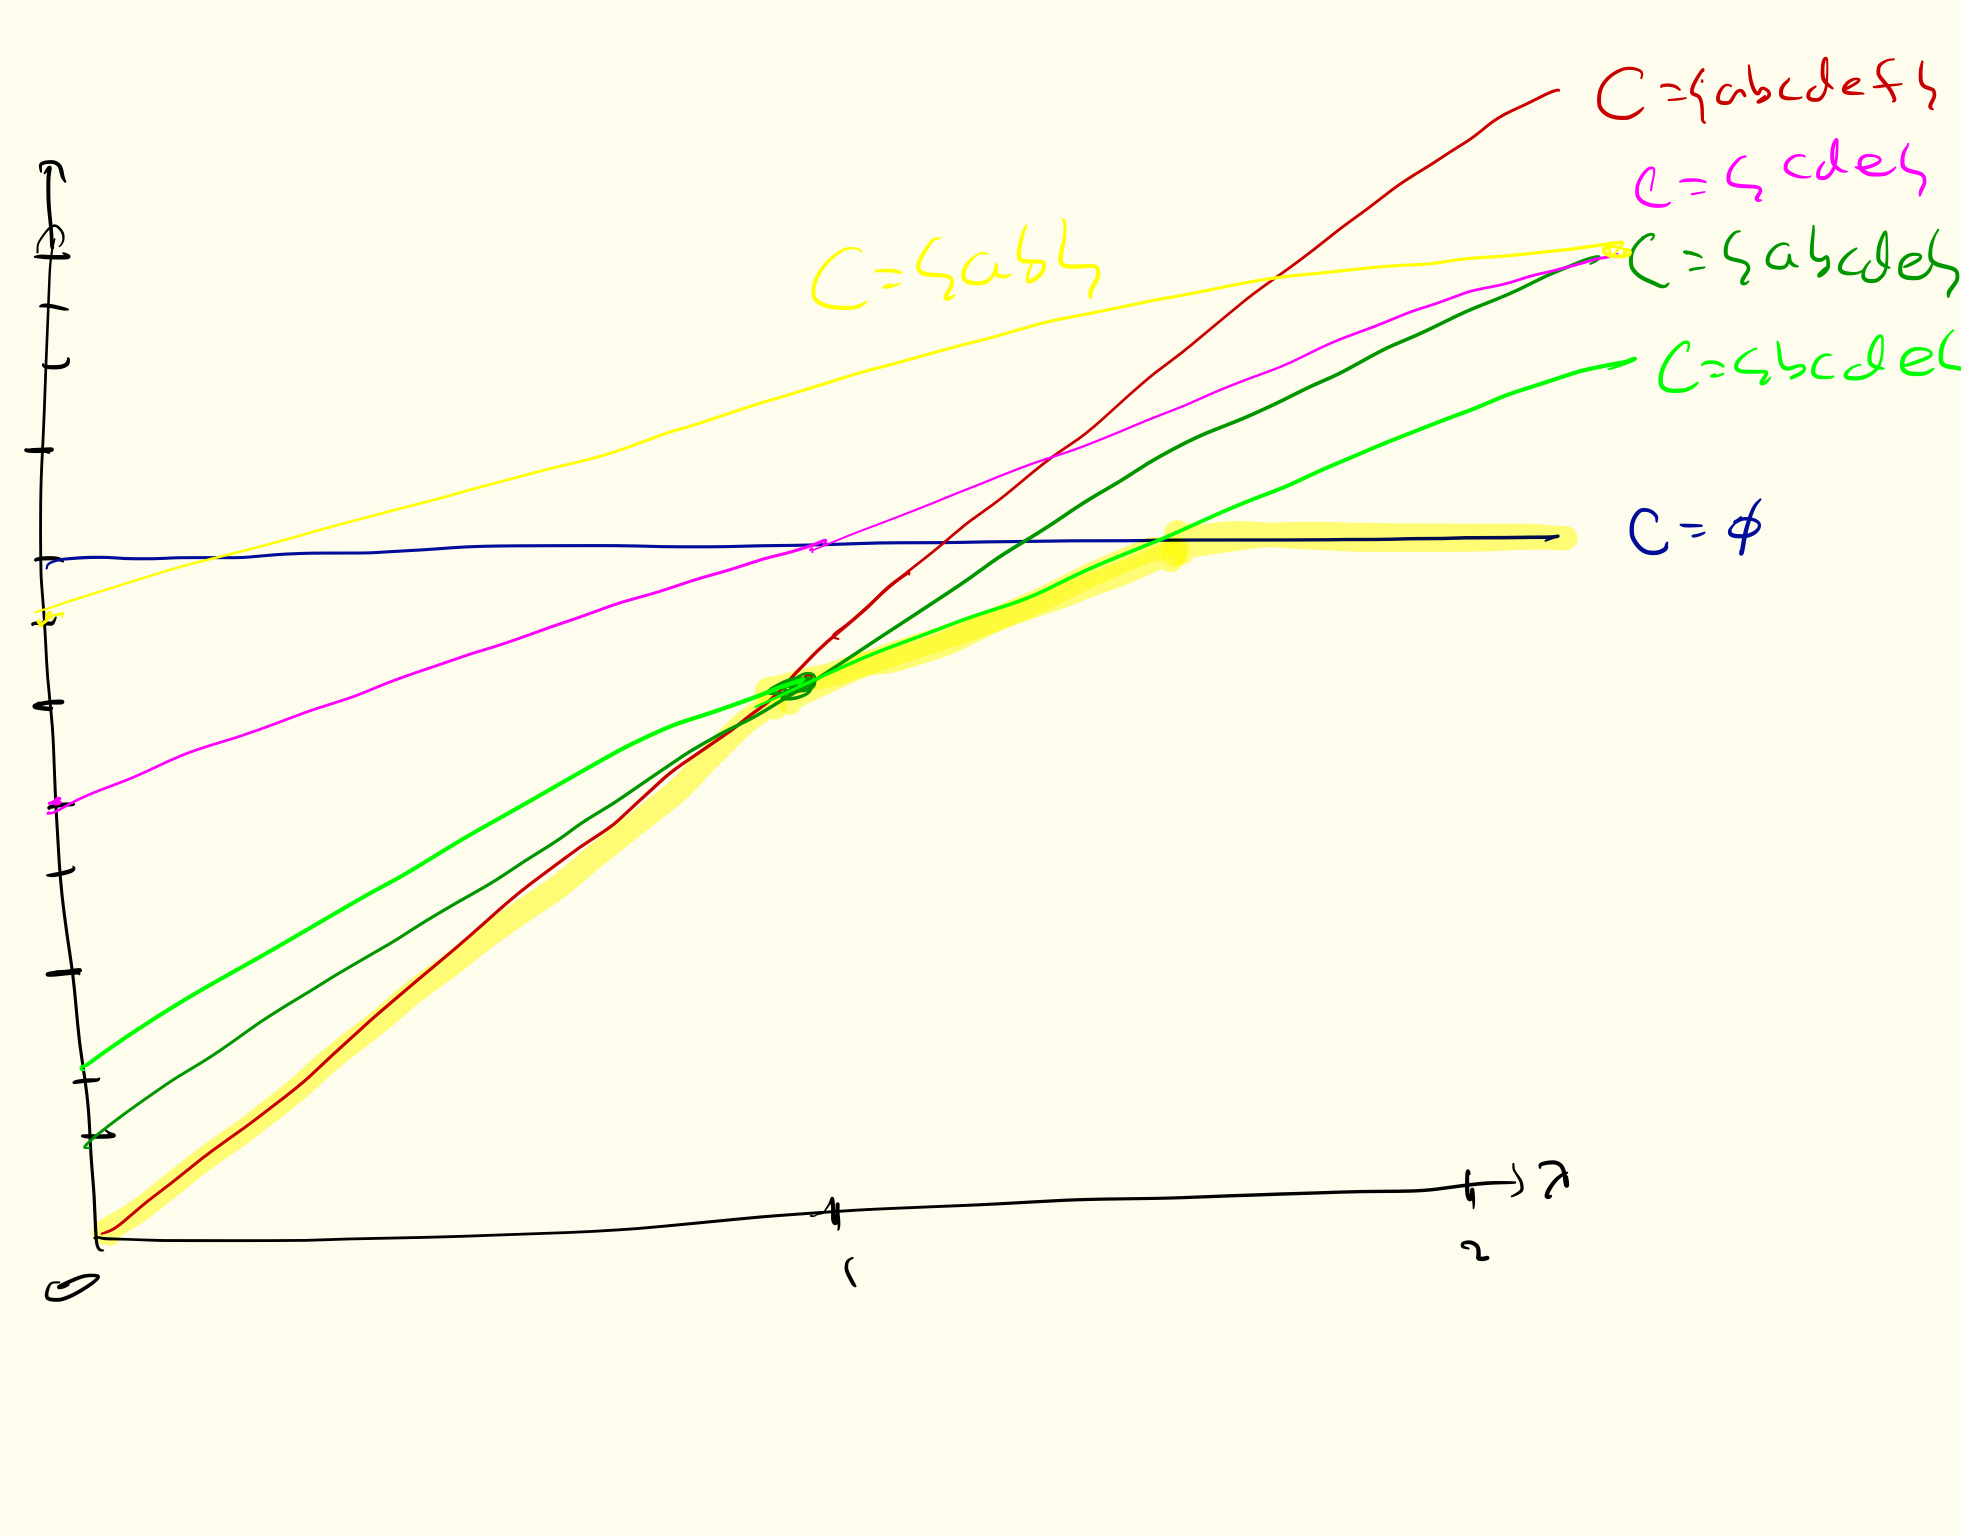 C={abcdef}
C={cde}
C={ab}
C={abcde}
C={bcde}
C=ϕ
λ
0
1
2